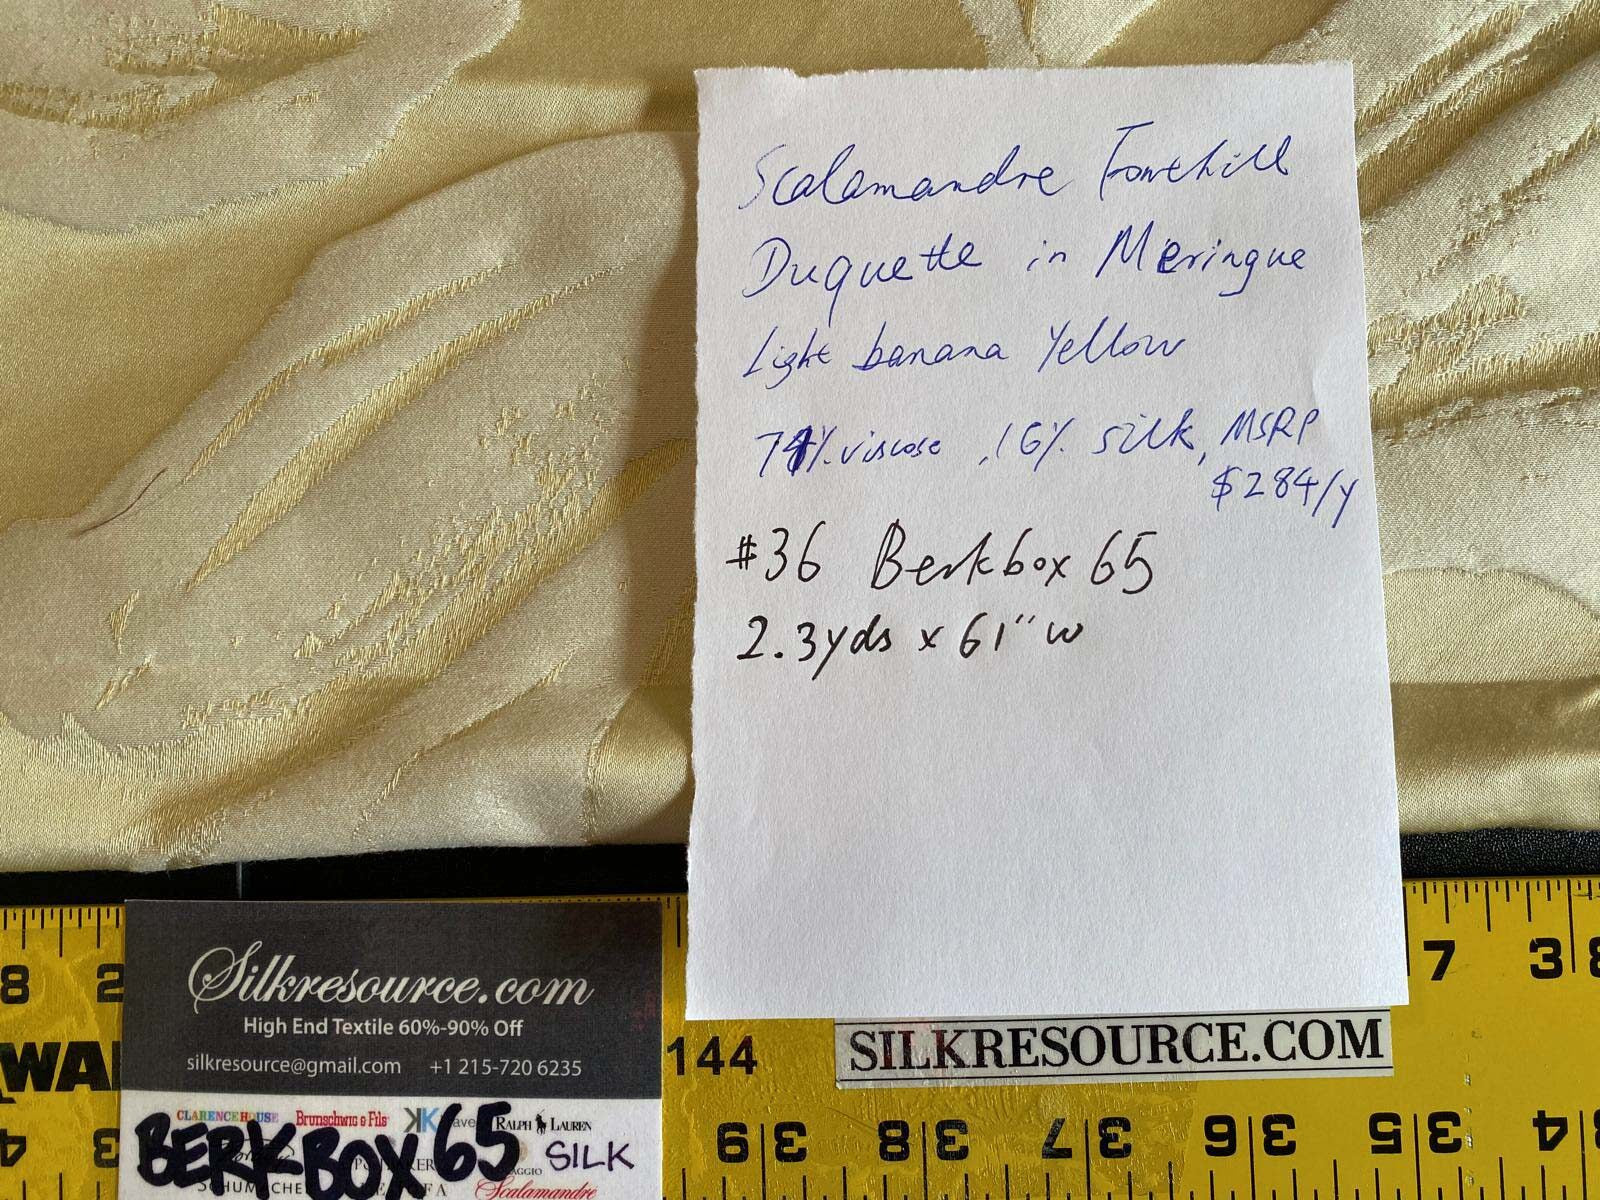 Scalamandre Fonthill
Duquette in Meringue
Light banana Yellow
74% viscose, 16% silk, MSRP
$284/y
#36 Berkbox 65
2.3yds x 61" w
Silkresource.com
High End Textile 60%-90% Off
silkresource@gmail.com +1 215-720 6235
CLARENCE HOUSE Brunschwig & Fils K RALPH LAUREN
BERKBOX65 SILK
SCHUMACHE Scalamandre
8 2 7 3 8
WA 144 SILKRESOURCE.COM
4 3 9 3 8 3 7 3 6 3 5 3 4